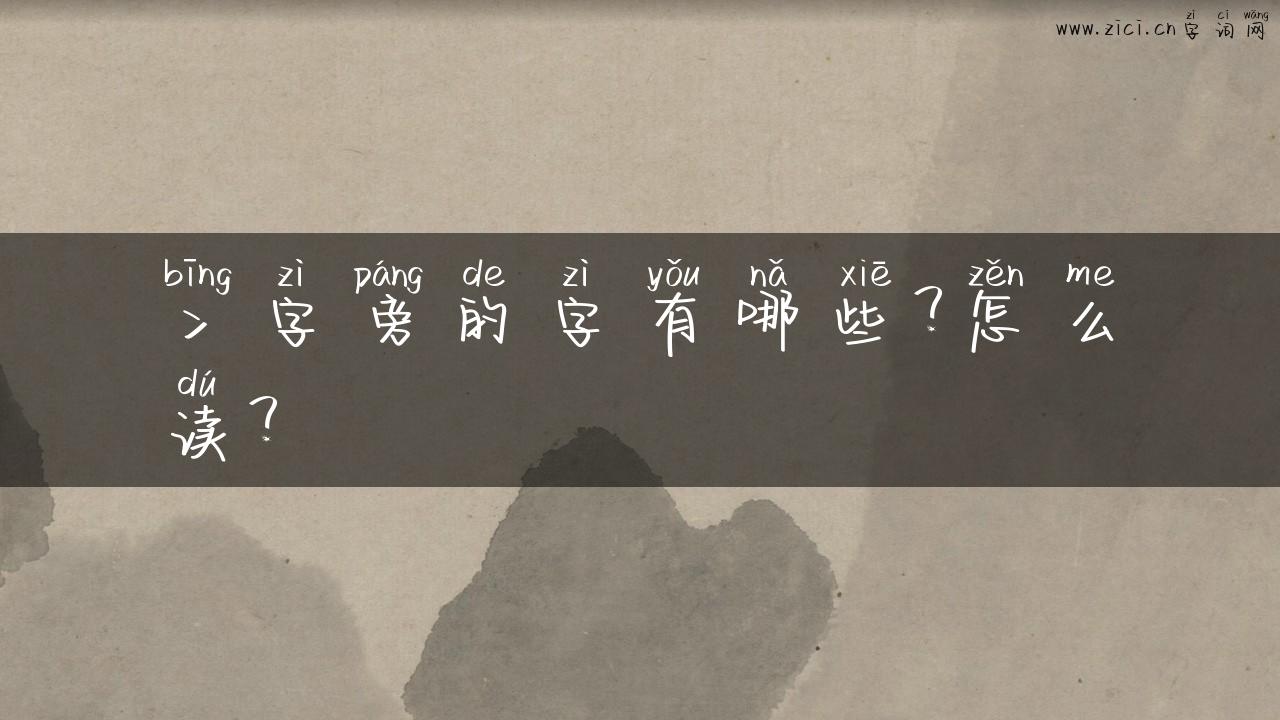 zì cí wǎng
www.zici.cn字词网
bīng zì páng de zì yǒu nǎ xiē zěn me
冫字旁的字有哪些？怎么
dú
读？